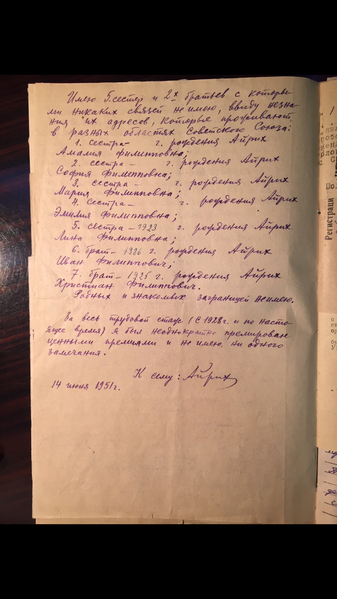 Имею 5 сестер и 2х братьев с которы-
ми никаких связей не имею, ввиду незна-
ния их адресов, которые проживают
в разных областях Советского Союза:
1. сестра — г. рождения Айрих
Амалия Филипповна;
2. сестра — г. рождения Айрих
София Филипповна;
3. сестра — г. рождения Айрих
Мария Филипповна;
4. сестра — г. рождения Айрих
Эмилия Филипповна;
5. сестра — 1923 г. рождения Айрих
Лина Филипповна;
6. брат — г. рождения Айрих
Иван Филиппович;
7. брат — г. рождения Айрих
Христиан Филиппович.
Родных и знакомых заграницей не имею.
За весь трудовой стаж (с 1928 г. и по насто-
ящее время) я был неоднократно премирован
ценными премиями и не имею ни одного
замечания.
К сему: Айрих
14 июня 1951 г.
Регистраци